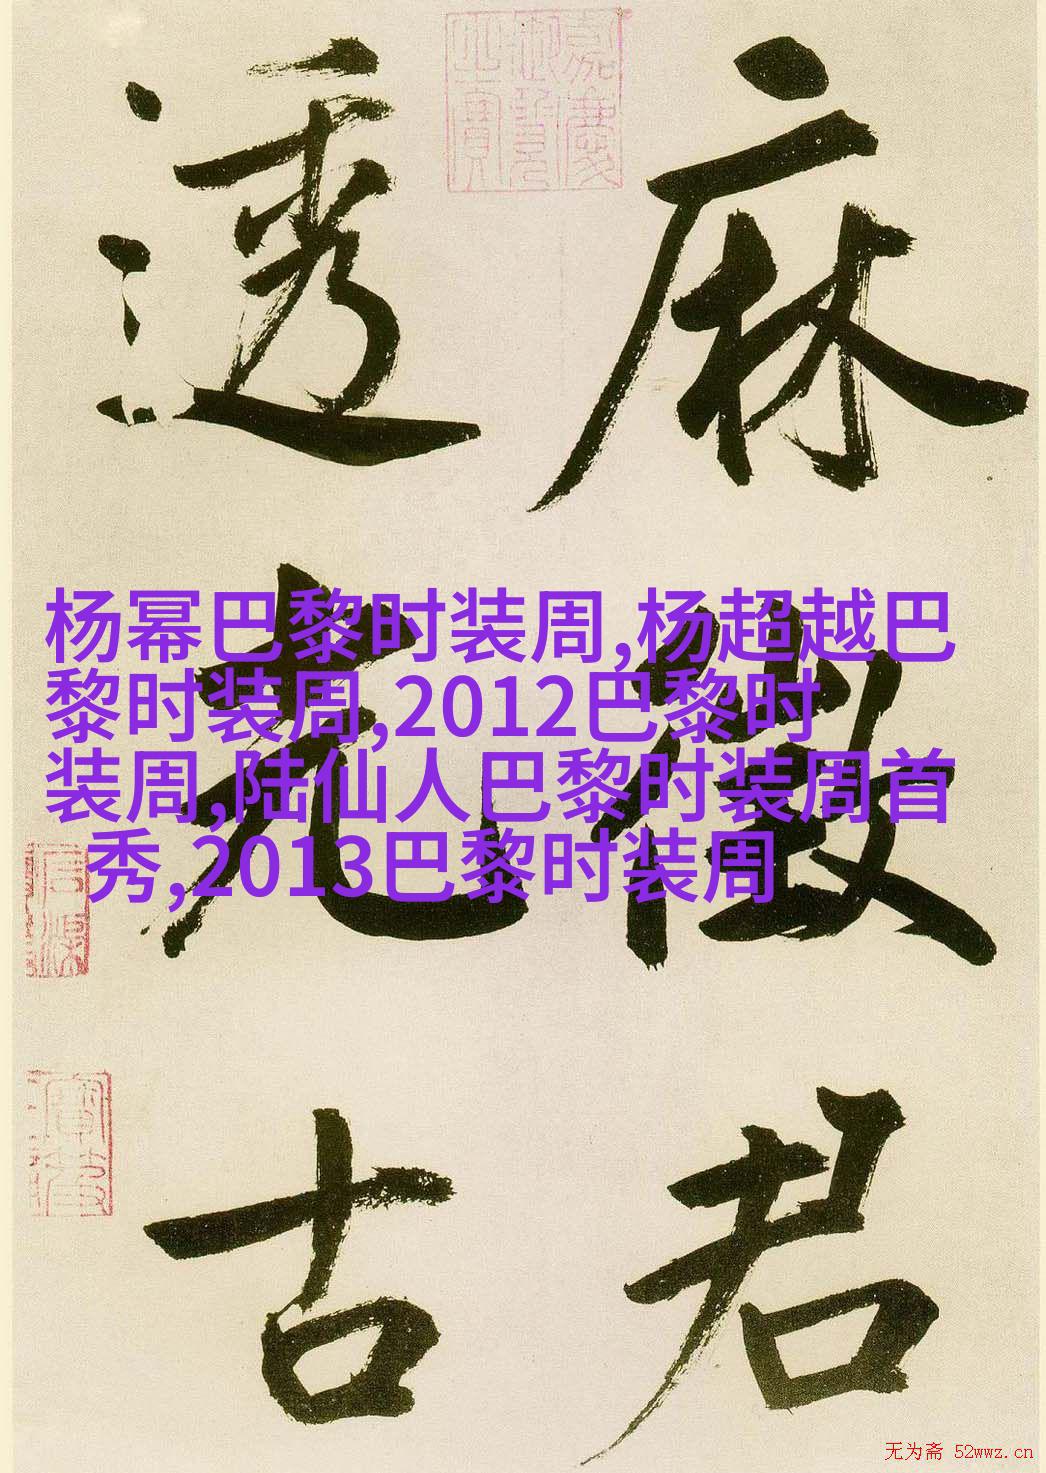 麻徴君
透光古
嘉慶御覽之寶
杨幂巴黎时装周,杨超越巴
黎时装周,2012巴黎时
装周,陆仙人巴黎时装周首
秀,2013巴黎时装周
无为斋 52wwz.cn